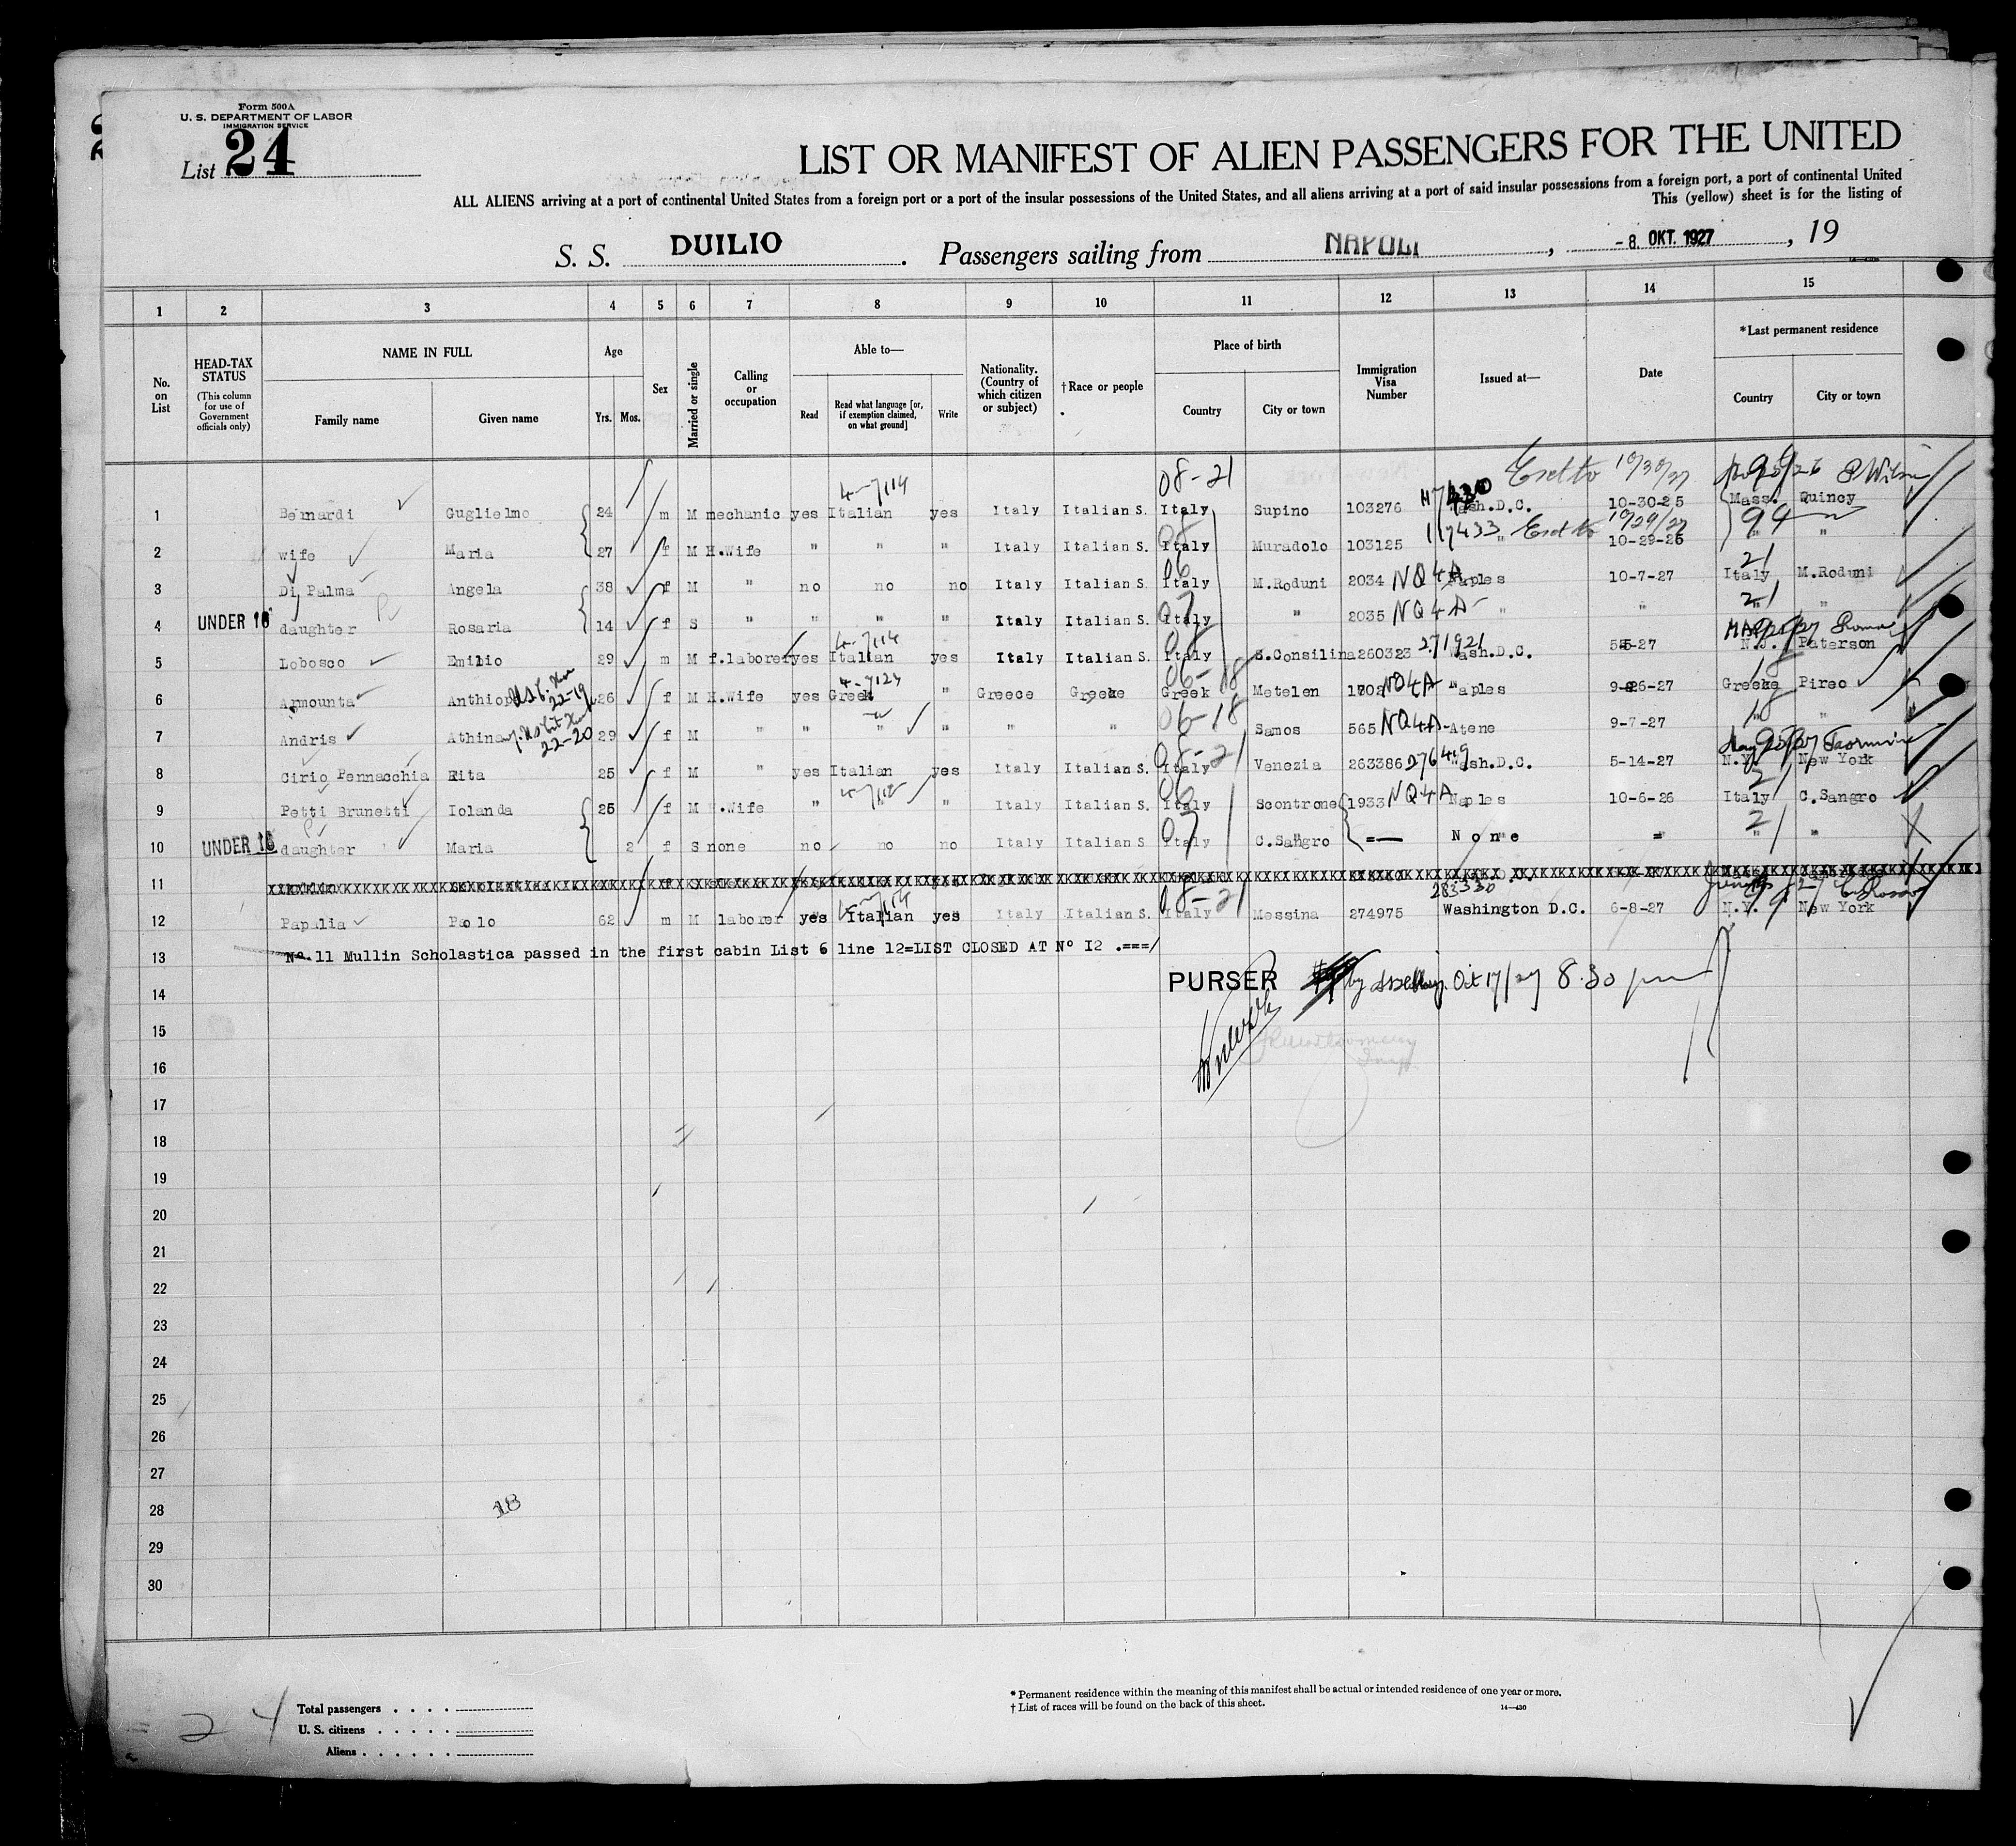 Form 500A
U. S. DEPARTMENT OF LABOR
IMMIGRATION SERVICE
List 24
LIST OR MANIFEST OF ALIEN PASSENGERS FOR THE UNITED
ALL ALIENS arriving at a port of continental United States from a foreign port or a port of the insular possessions of the United States, and all aliens arriving at a port of said insular possessions from a foreign port, a port of continental United
This (yellow) sheet is for the listing of
S. S. DUILIO . Passengers sailing from NAPOLI , -8. OKT. 1927 , 19
1 2 3 4 5 6 7 8 9 10 11 12 13 14 15
No. on List
HEAD-TAX STATUS (This column for use of Government officials only)
NAME IN FULL Family name Given name
Age Yrs. Mos.
Sex
Married or single
Calling or occupation
Able to— Read Read what language [or, if exemption claimed, on what ground] Write
Nationality. (Country of which citizen or subject)
†Race or people
Place of birth Country City or town
Immigration Visa Number
Issued at—
Date
*Last permanent residence Country City or town
08-21 4-7/14 10/30/27
1 Bernardi Guglielmo 24 m M mechanic yes Italian yes Italy Italian S. Italy Supino 103276 Wash.D.C. 10-30-25 Mass. Quincy
2 wife Maria 27 f M H.Wife " " " Italy Italian S. Italy Muradolo 103125 117433 " 10-29-26 " "
3 Di Palma Angela 38 f M " no no no Italy Italian S. Italy M.Roduni 2034 NQ4A Naples 10-7-27 Italy M.Roduni
4 UNDER 16 daughter Rosaria 14 f S " " " " Italy Italian S. Italy " 2035 NQ4A- " " " "
5 Lobosco Emilio 29 m M f.laborer yes Italian yes Italy Italian S. Italy S.Consilina 260323 271921 Wash.D.C. 5-5-27 N.J. Paterson
6 Armounta Anthiop 22-19 26 f M H.Wife yes Greek " Greece Greeke Greek Metelen NQ4A Naples 9-26-27 Greeke Pireo
7 Andris Athina 22-20 29 f M " " " " " " 06-18 Samos 565 NQ4A- Atene 9-7-27 " "
8 Cirio Pennacchia Rita 25 f M " yes Italian yes Italy Italian S. Italy Venezia 263386 276419 Wash.D.C. 5-14-27 N.Y. New York
9 Petti Brunetti Iolanda 25 f M H.Wife " " " Italy Italian S. Italy Scontrone 1933 NQ4A Naples 10-6-26 Italy C.Sangro
10 UNDER 16 daughter Maria 2 f S none no no no Italy Italian S Italy C.Sangro =— None = " "
11
283330
12 Papalia Paolo 62 m M laborer yes Italian yes Italy Italian S. Italy Messina 274975 Washington D.C. 6-8-27 N.Y. New York
13 Nº.11 Mullin Scholastica passed in the first cabin List 6 line 12=LIST CLOSED AT Nº I2 .===/
14 PURSER by Oct 17/27 8.30 pm
15
16
17
18
19
20
21
22
23
24
25
26
27
28 18
29
30
24
Total passengers
U. S. citizens
Aliens
* Permanent residence within the meaning of this manifest shall be actual or intended residence of one year or more.
† List of races will be found on the back of this sheet.
14—430